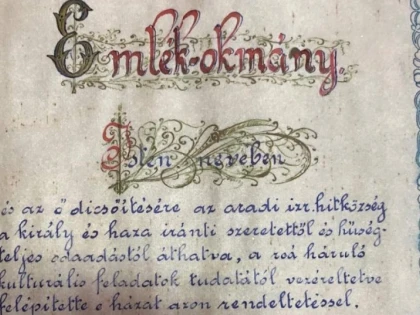 Emlék-okmány.
Isten nevében
és az ő dicsőitésére az aradi izr. hitközség
a király és haza iránti szeretettől és hüség-
teljes odaadástól áthatva, a reá háruló
kulturális feladatok tudatától vezéreltetve
felépitette e házat azon rendeltetéssel.